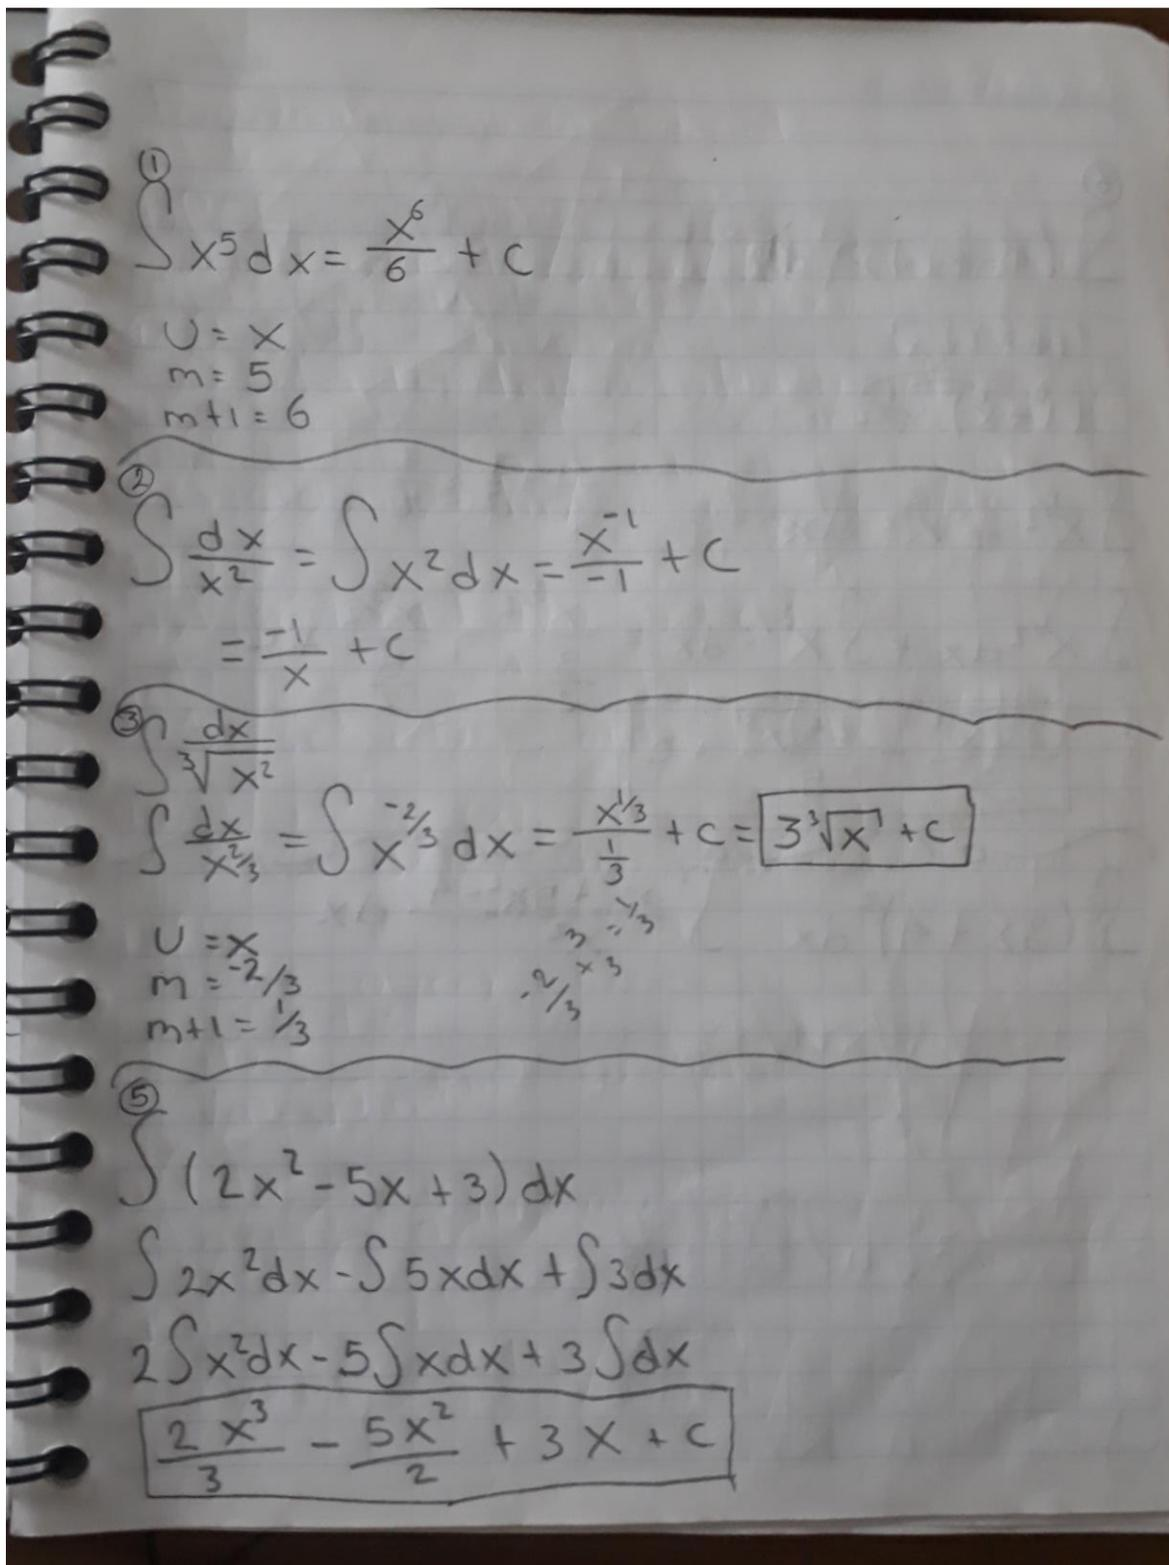 ①
∫ x⁵ dx = x⁶/6 + c
U = x
m = 5
m+1 = 6
②
∫ dx/x² = ∫ x² dx = x⁻¹/-1 + C
= -1/x + C
③
∫ dx/∛x²
∫ dx/x^2/3 = ∫ x^-2/3 dx = x^1/3 / 1/3 + C = 3∛x + C
U = x
m = -2/3
m+1 = 1/3
⑤
∫ (2x² - 5x + 3) dx
∫ 2x² dx - ∫ 5x dx + ∫ 3 dx
2 ∫ x² dx - 5 ∫ x dx + 3 ∫ dx
2x³/3 - 5x²/2 + 3x + c